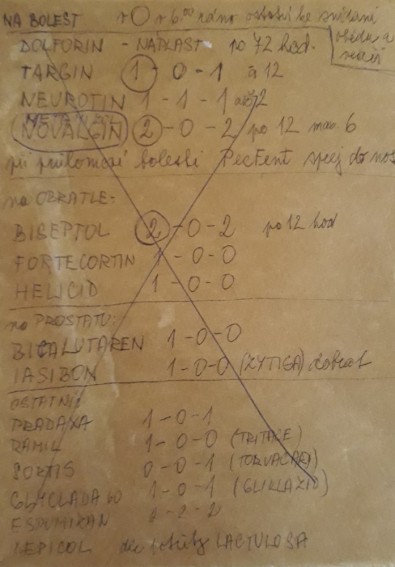 NA BOLEST v O v 6.00 ráno ostatní ke snídani
oběda a večeři
DOLFORIN - NÁPLAST po 72 hod.
TARGIN 1 - 0 - 1 à 12
NEUROTIN 1 - 1 - 1
METAMIZOL
NOVALGIN 2 - 0 - 2 po 12 max 6
při průlomové bolesti PecFent sprej do nosu
na OBRATLE:
BISEPTOL 2 - 0 - 2 po 12 hod
FORTECORTIN 1 - 0 - 0
HELICID 1 - 0 - 0
na PROSTATU:
BICALUTAREN 1 - 0 - 0
IASIBON 1 - 0 - 0 (ZYTIGA)
OSTATNÍ:
PRADAXA 1 - 0 - 1
RAMIL 1 - 0 - 0 (TRITACE)
SORTIS 0 - 0 - 1 (TORVACARD)
GLYCLADA 60 1 - 0 - 1 (GLIKLAZID)
ESPUMISAN 2 - 2 - 2
LEPICOL dle potřeby LACTULOSA